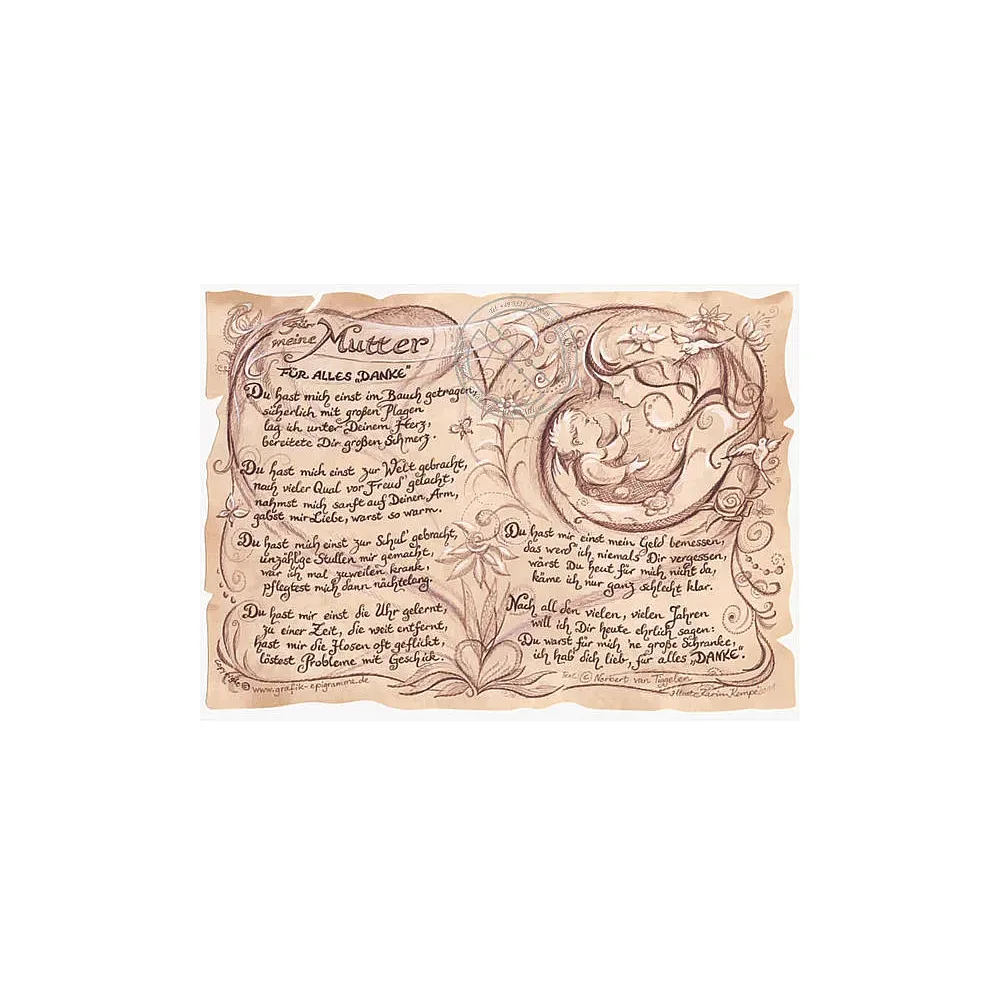 Für
meine Mutter
FÜR ALLES „DANKE“
Du hast mich einst im Bauch getragen,
sicherlich mit großen Plagen
lag ich unter Deinem Herz,
bereitete Dir großen Schmerz.
Du hast mich einst zur Welt gebracht,
nach vieler Qual vor Freud' gelacht,
nahmst mich sanft auf Deinen Arm,
gabst mir Liebe, warst so warm.
Du hast mich einst zur Schul' gebracht,
unzählge Stullen mir gemacht,
war ich mal zuweilen krank,
pflegtest mich dann nächtelang.
Du hast mir einst die Uhr gelernt,
zu einer Zeit, die weit entfernt,
hast mir die Hosen oft geflickt,
löstest Probleme mit Geschick.
Du hast mir einst mein Geld bemessen,
das werd' ich niemals Dir vergessen,
wärst Du heut für mich nicht da,
käme ich nur ganz schlecht klar.
Nach all den vielen, vielen Jahren
will ich Dir heute ehrlich sagen:
Du warst für mich 'ne große Schranke,
ich hab dich lieb, für alles „DANKE“.
© www.grafik-epigramme.de
Text © Norbert van Tiggelen
Karin Kempe